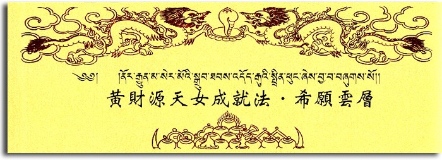 ༄༅། །ནོར་རྒྱུན་མ་སེར་མོའི་སྒྲུབ་ཐབས་འདོད་རྒུའི་སྤྲིན་ཕུང་ཞེས་བྱ་བ་བཞུགས་སོ། །
黃財源天女成就法·希願雲層